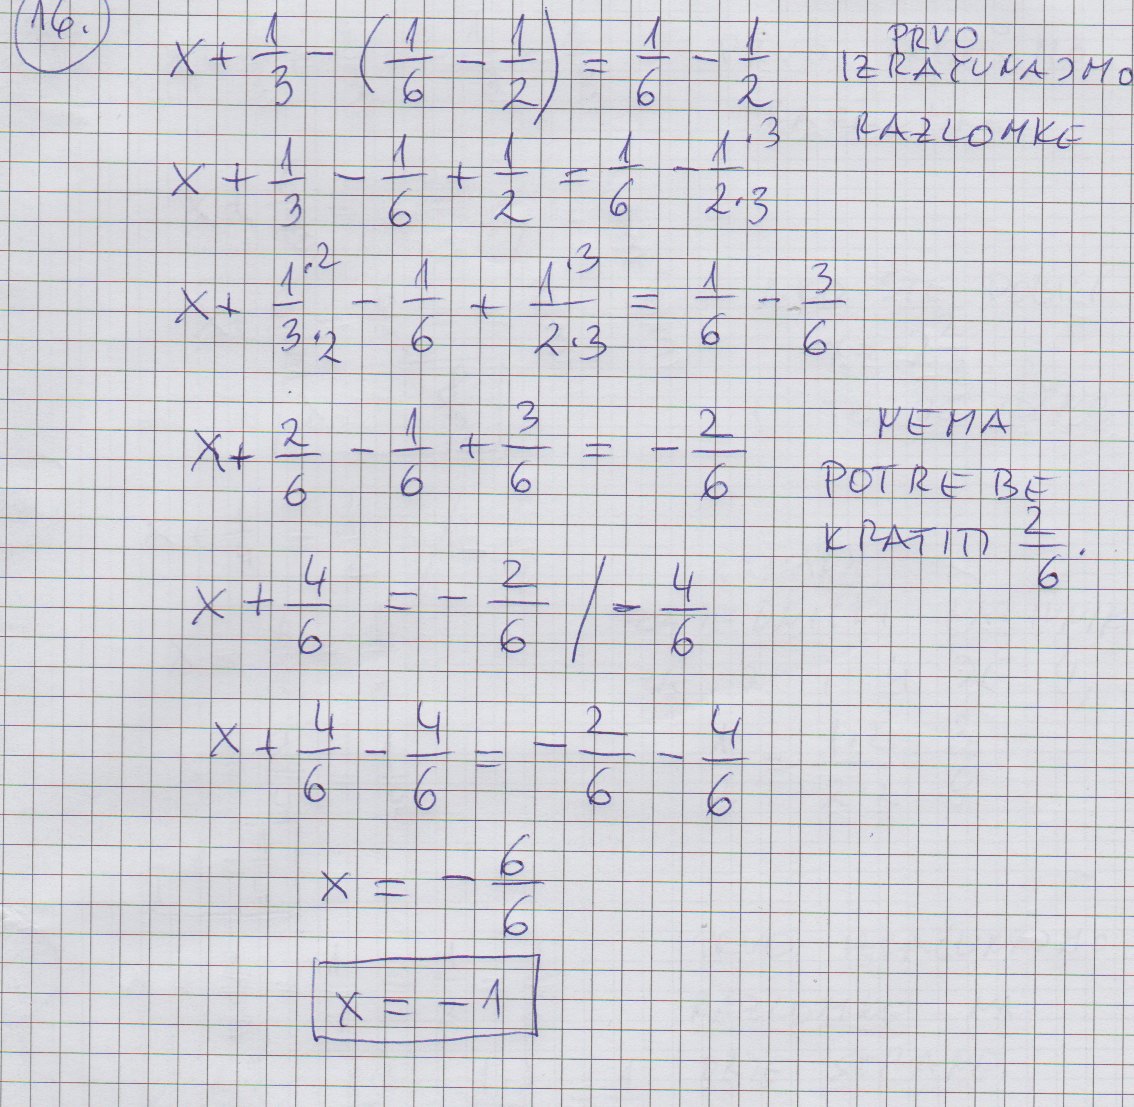 16.
x + 1/3 - (1/6 - 1/2) = 1/6 - 1/2 PRVO IZRAČUNAJMO RAZLOMKE
x + 1/3 - 1/6 + 1/2 = 1/6 - 1·3/2·3
x + 1·2/3·2 - 1/6 + 1·3/2·3 = 1/6 - 3/6
x + 2/6 - 1/6 + 3/6 = - 2/6 NEMA POTREBE KRATITI 2/6.
x + 4/6 = - 2/6 / - 4/6
x + 4/6 - 4/6 = - 2/6 - 4/6
x = - 6/6
x = - 1